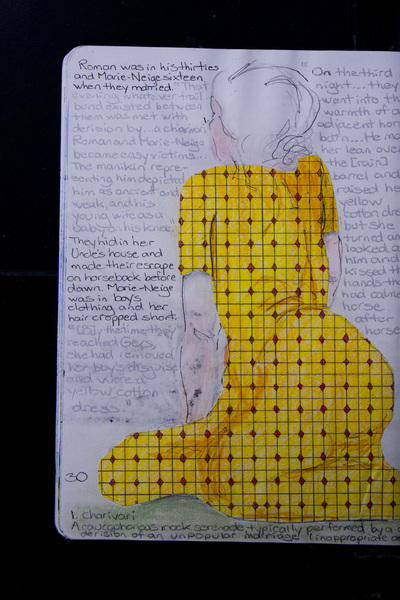 Roman was in his thirties
and Marie-Neige sixteen
when they married. That
evening whatever frail
bond existed between
them was met with
derision by... a charivari
Roman and Marie-Neige
became easy victims...
The manikin repre-
senting him depicted
him as ancient and
weak, and his
young wife as a
baby on his knee."
They hid in her
Uncle's house and
made their escape
on horseback before
dawn. Marie-Neige
was in boy's
clothing and her
hair cropped short.
"[B]y the time they
reached Gers,
she had removed
her boy's disguise
and wore a
yellow cotton
dress."
1.
" On the third
night.... they
went into the
warmth of a
adjacent
barn.... He ma
her lean over
the [rain]
barrel and
raised he
yellow
cotton dre
but she
turned an
looked a
him and
kissed t
hands th
had calm
horse
after
horse
30
1. Charivari
A cacophonous mock serenade, typically performed by a
derision of an unpopular marriage (inappropriate